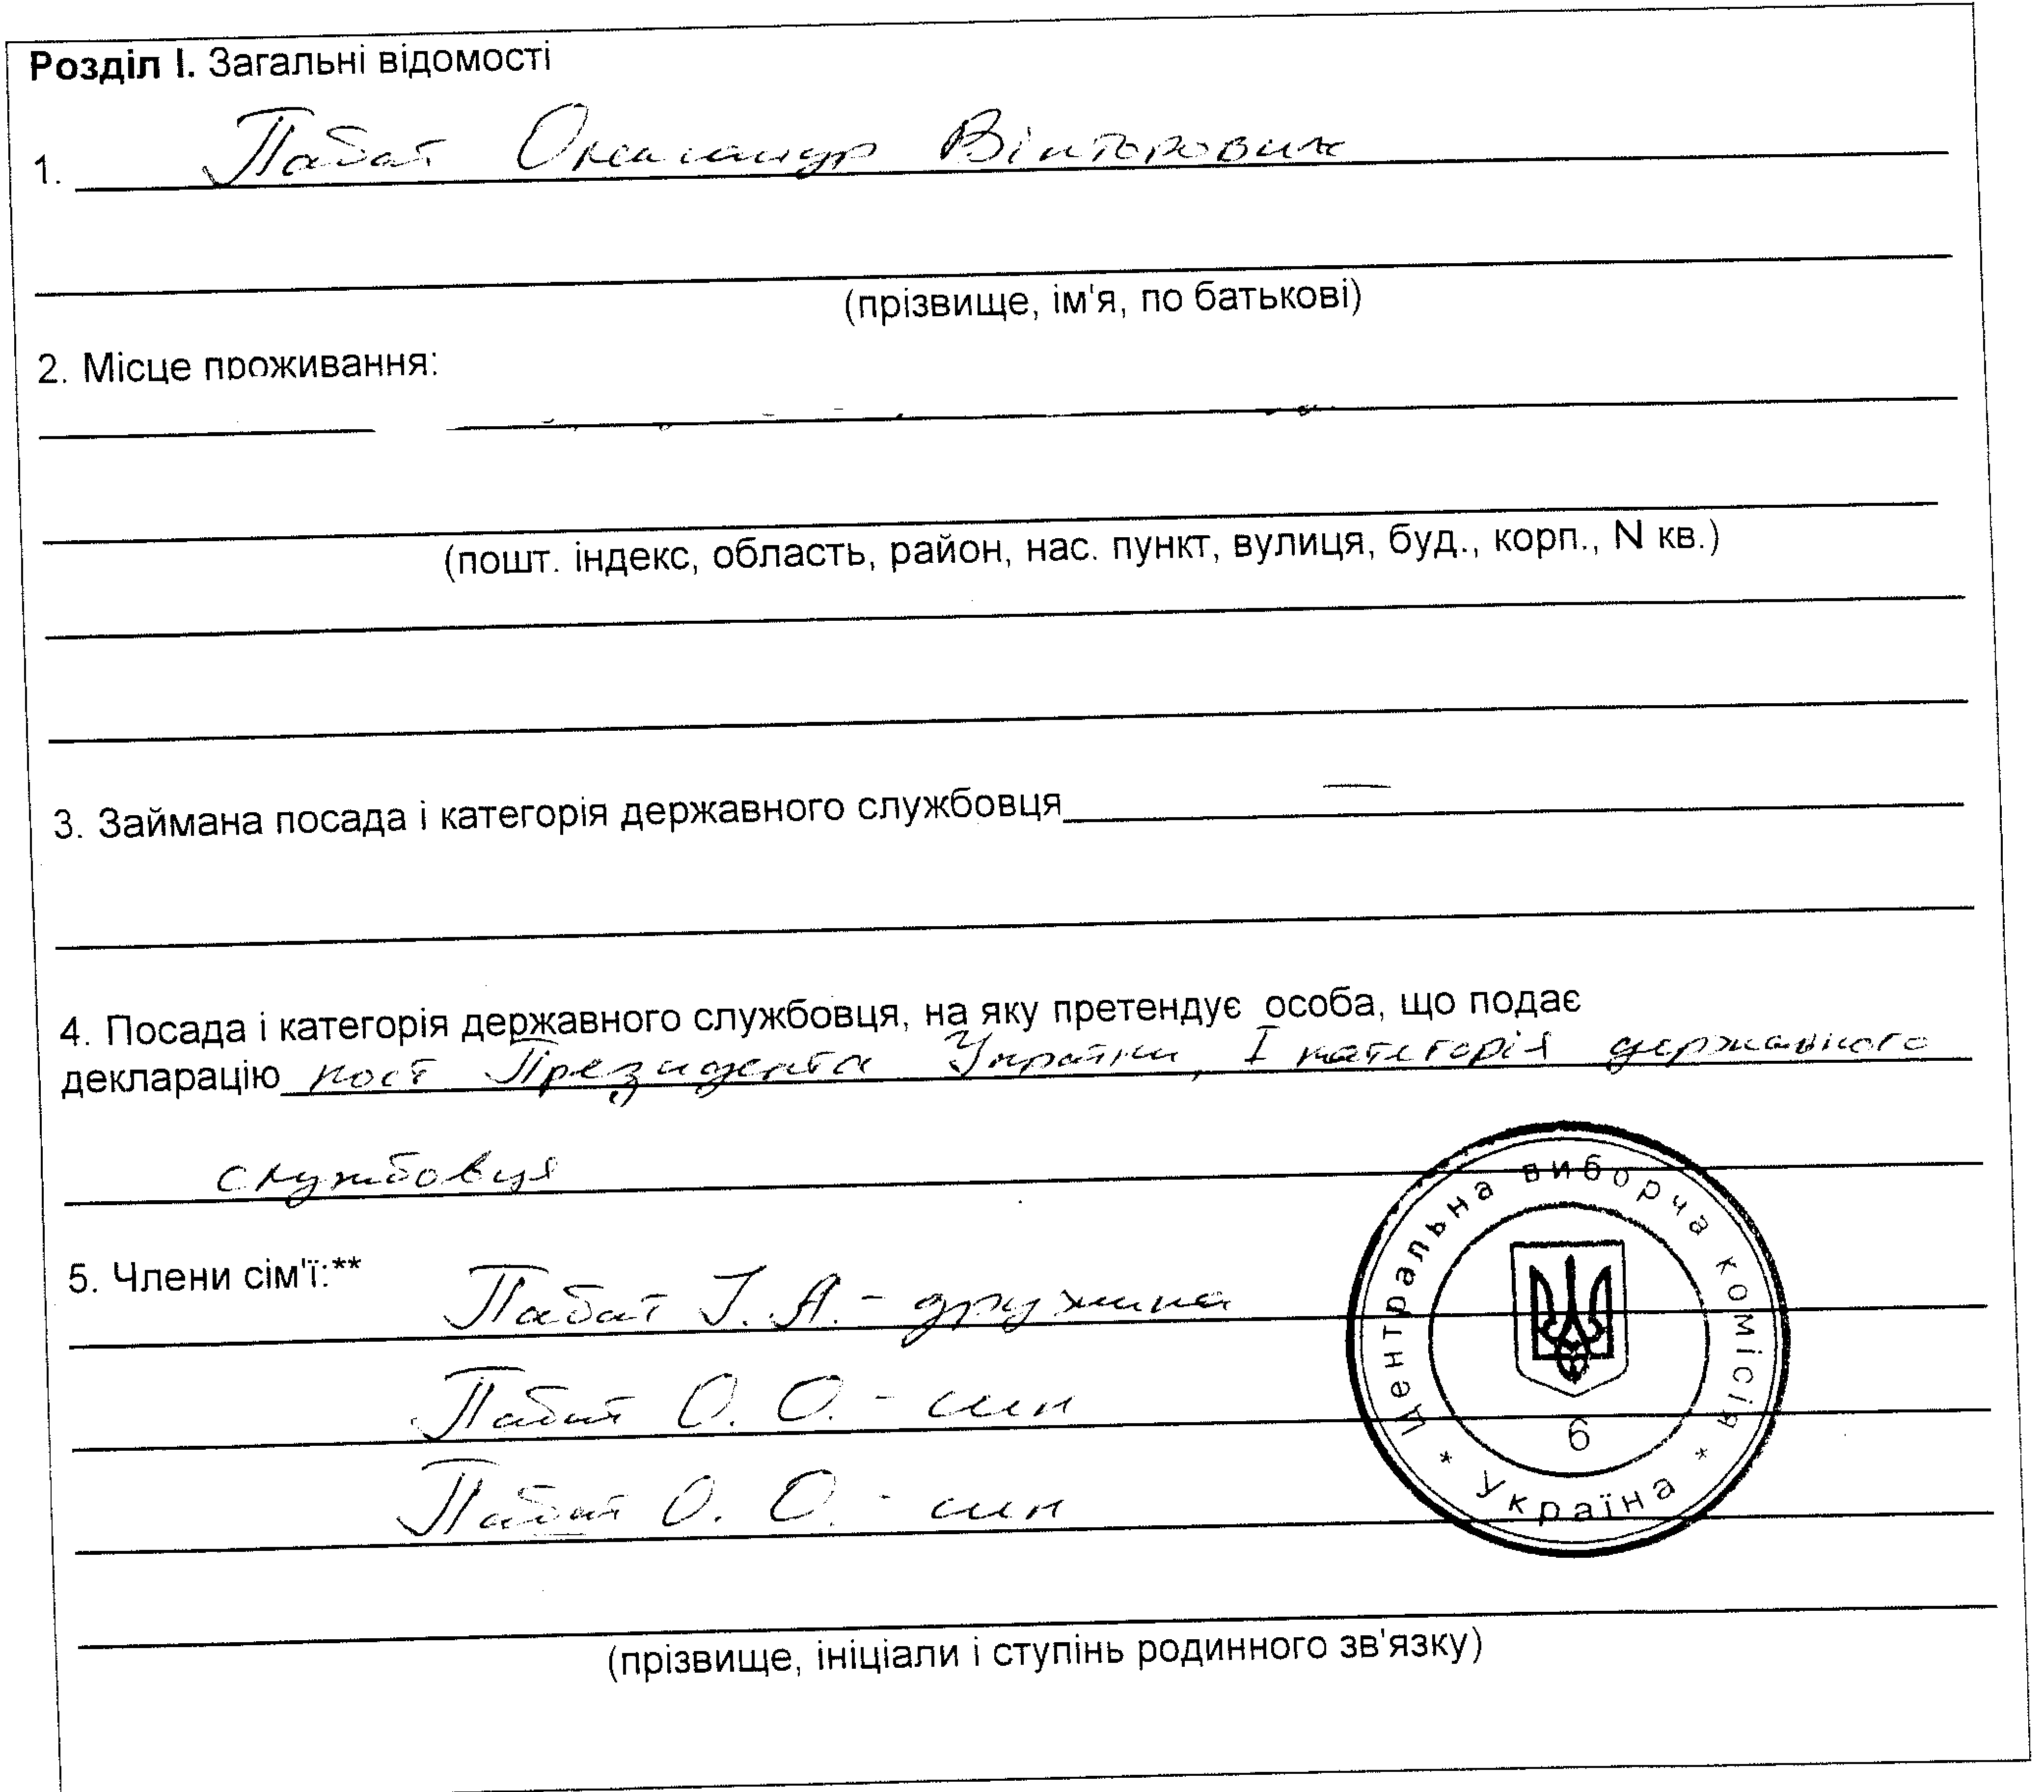 Розділ І. Загальні відомості
1. Пабат Олександр Вікторович
(прізвище, ім'я, по батькові)
2. Місце проживання:
(пошт. індекс, область, район, нас. пункт, вулиця, буд., корп., N кв.)
3. Займана посада і категорія державного службовця —
4. Посада і категорія державного службовця, на яку претендує особа, що подає
декларацію пост Президента України, І категорія державного
службовця
5. Члени сім'ї:**
Пабат І. А. - дружина
Пабат О. О. - син
Пабат О. О. - син
(прізвище, ініціали і ступінь родинного зв'язку)
Центральна виборча комісія
6
* Україна *